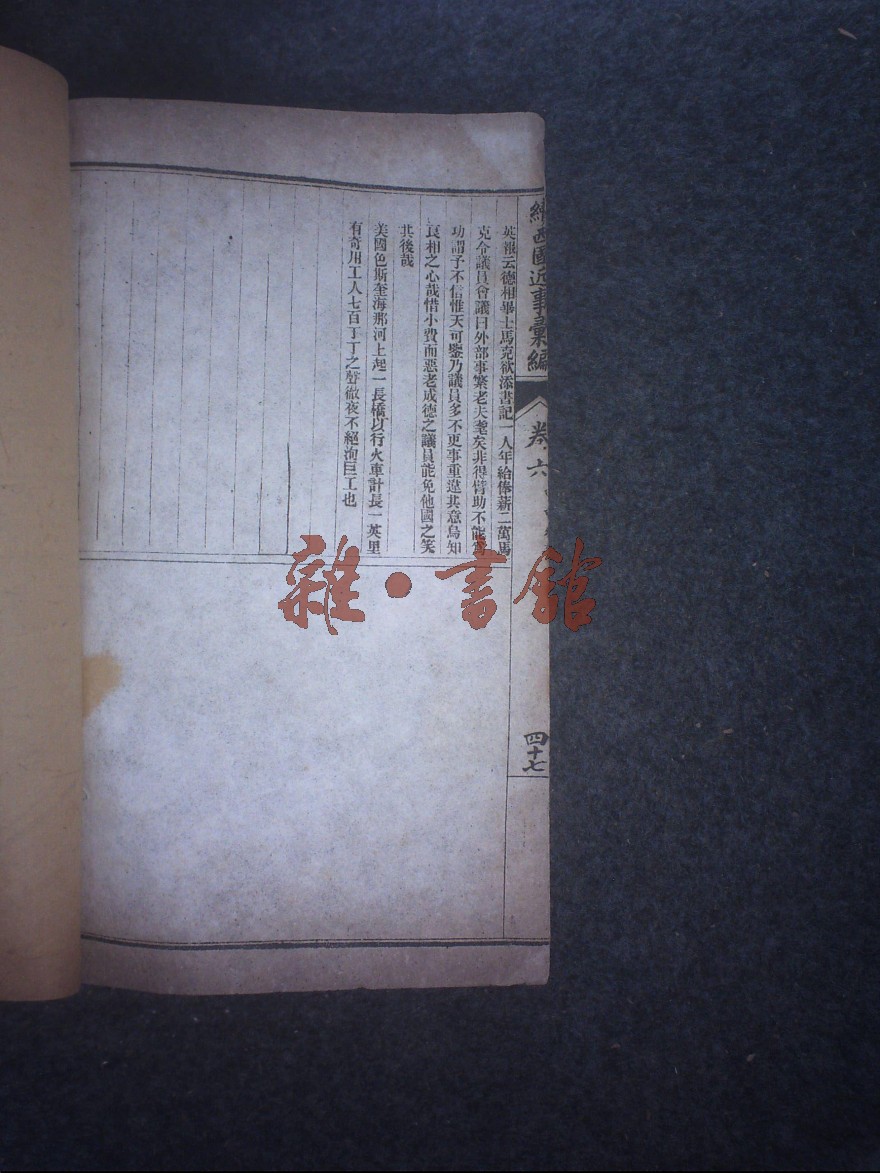 續西國近事彙編
卷六
四十七
英報云德相畢士馬克欲添書記一人年給俸薪二萬馬
克令議員會議曰外部事繁老夫耄矣非得臂助不能為
功謂予不信惟天可鑒乃議員多不更事重違其意烏知
良相之心哉惜小費而惡老成德之議員能免他國之笑
其後哉
美國色斯奎海那河上起一長橋以行火車計長一英里
有奇用工人七百丁丁之聲徹夜不絕洵巨工也
雜·書館